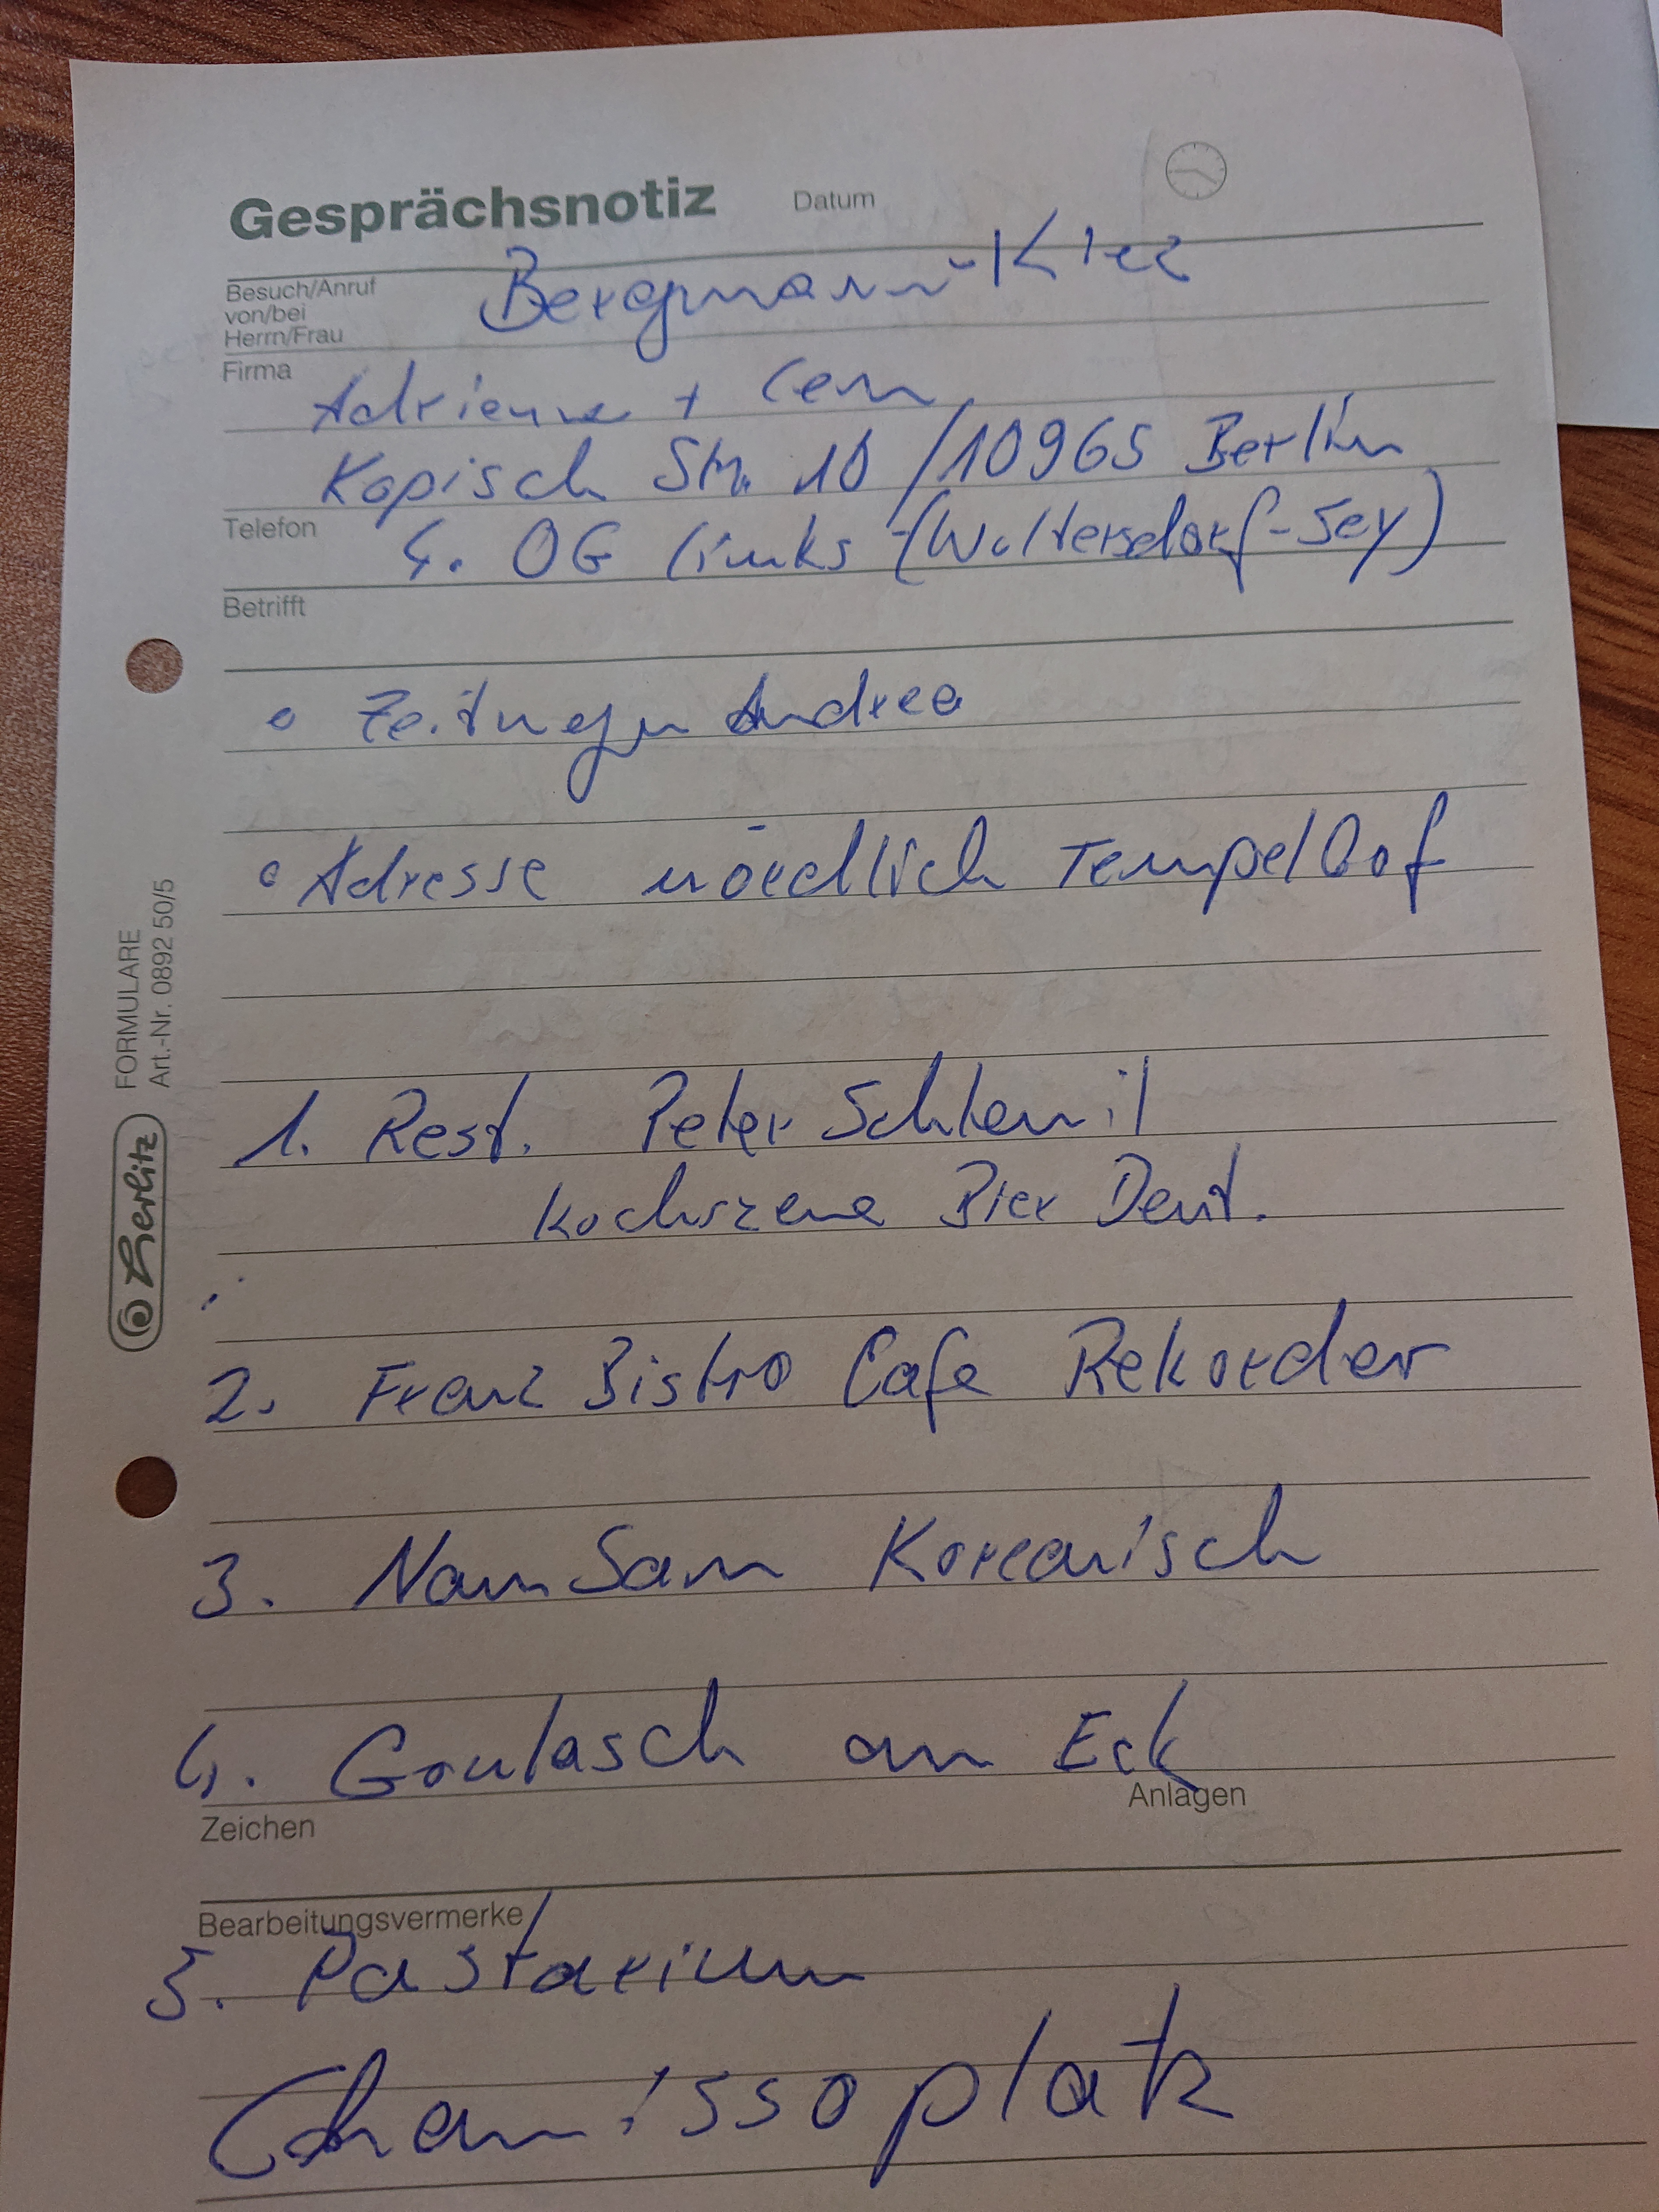 Gesprächsnotiz Datum
Besuch/Anruf
von/bei
Herrn/Frau
Bergmann-Kiez
Firma
Adrienne + Cem
Kopisch Str. 10 / 10965 Berlin
Telefon
4. OG links (Woltersdorf-Sey)
Betrifft
Zeitungen Andrea
Adresse nördlich Tempelhof
FORMULARE
Art.-Nr. 0892 50/5
herlitz
1. Rest. Peter Schlemil
Kochszene Bier Deut.
2. Franz Bistro Cafe Rekorder
3. NamSam Koreanisch
4. Goulasch am Eck
Zeichen Anlagen
Bearbeitungsvermerke
5. Pastarium
Chamissoplatz